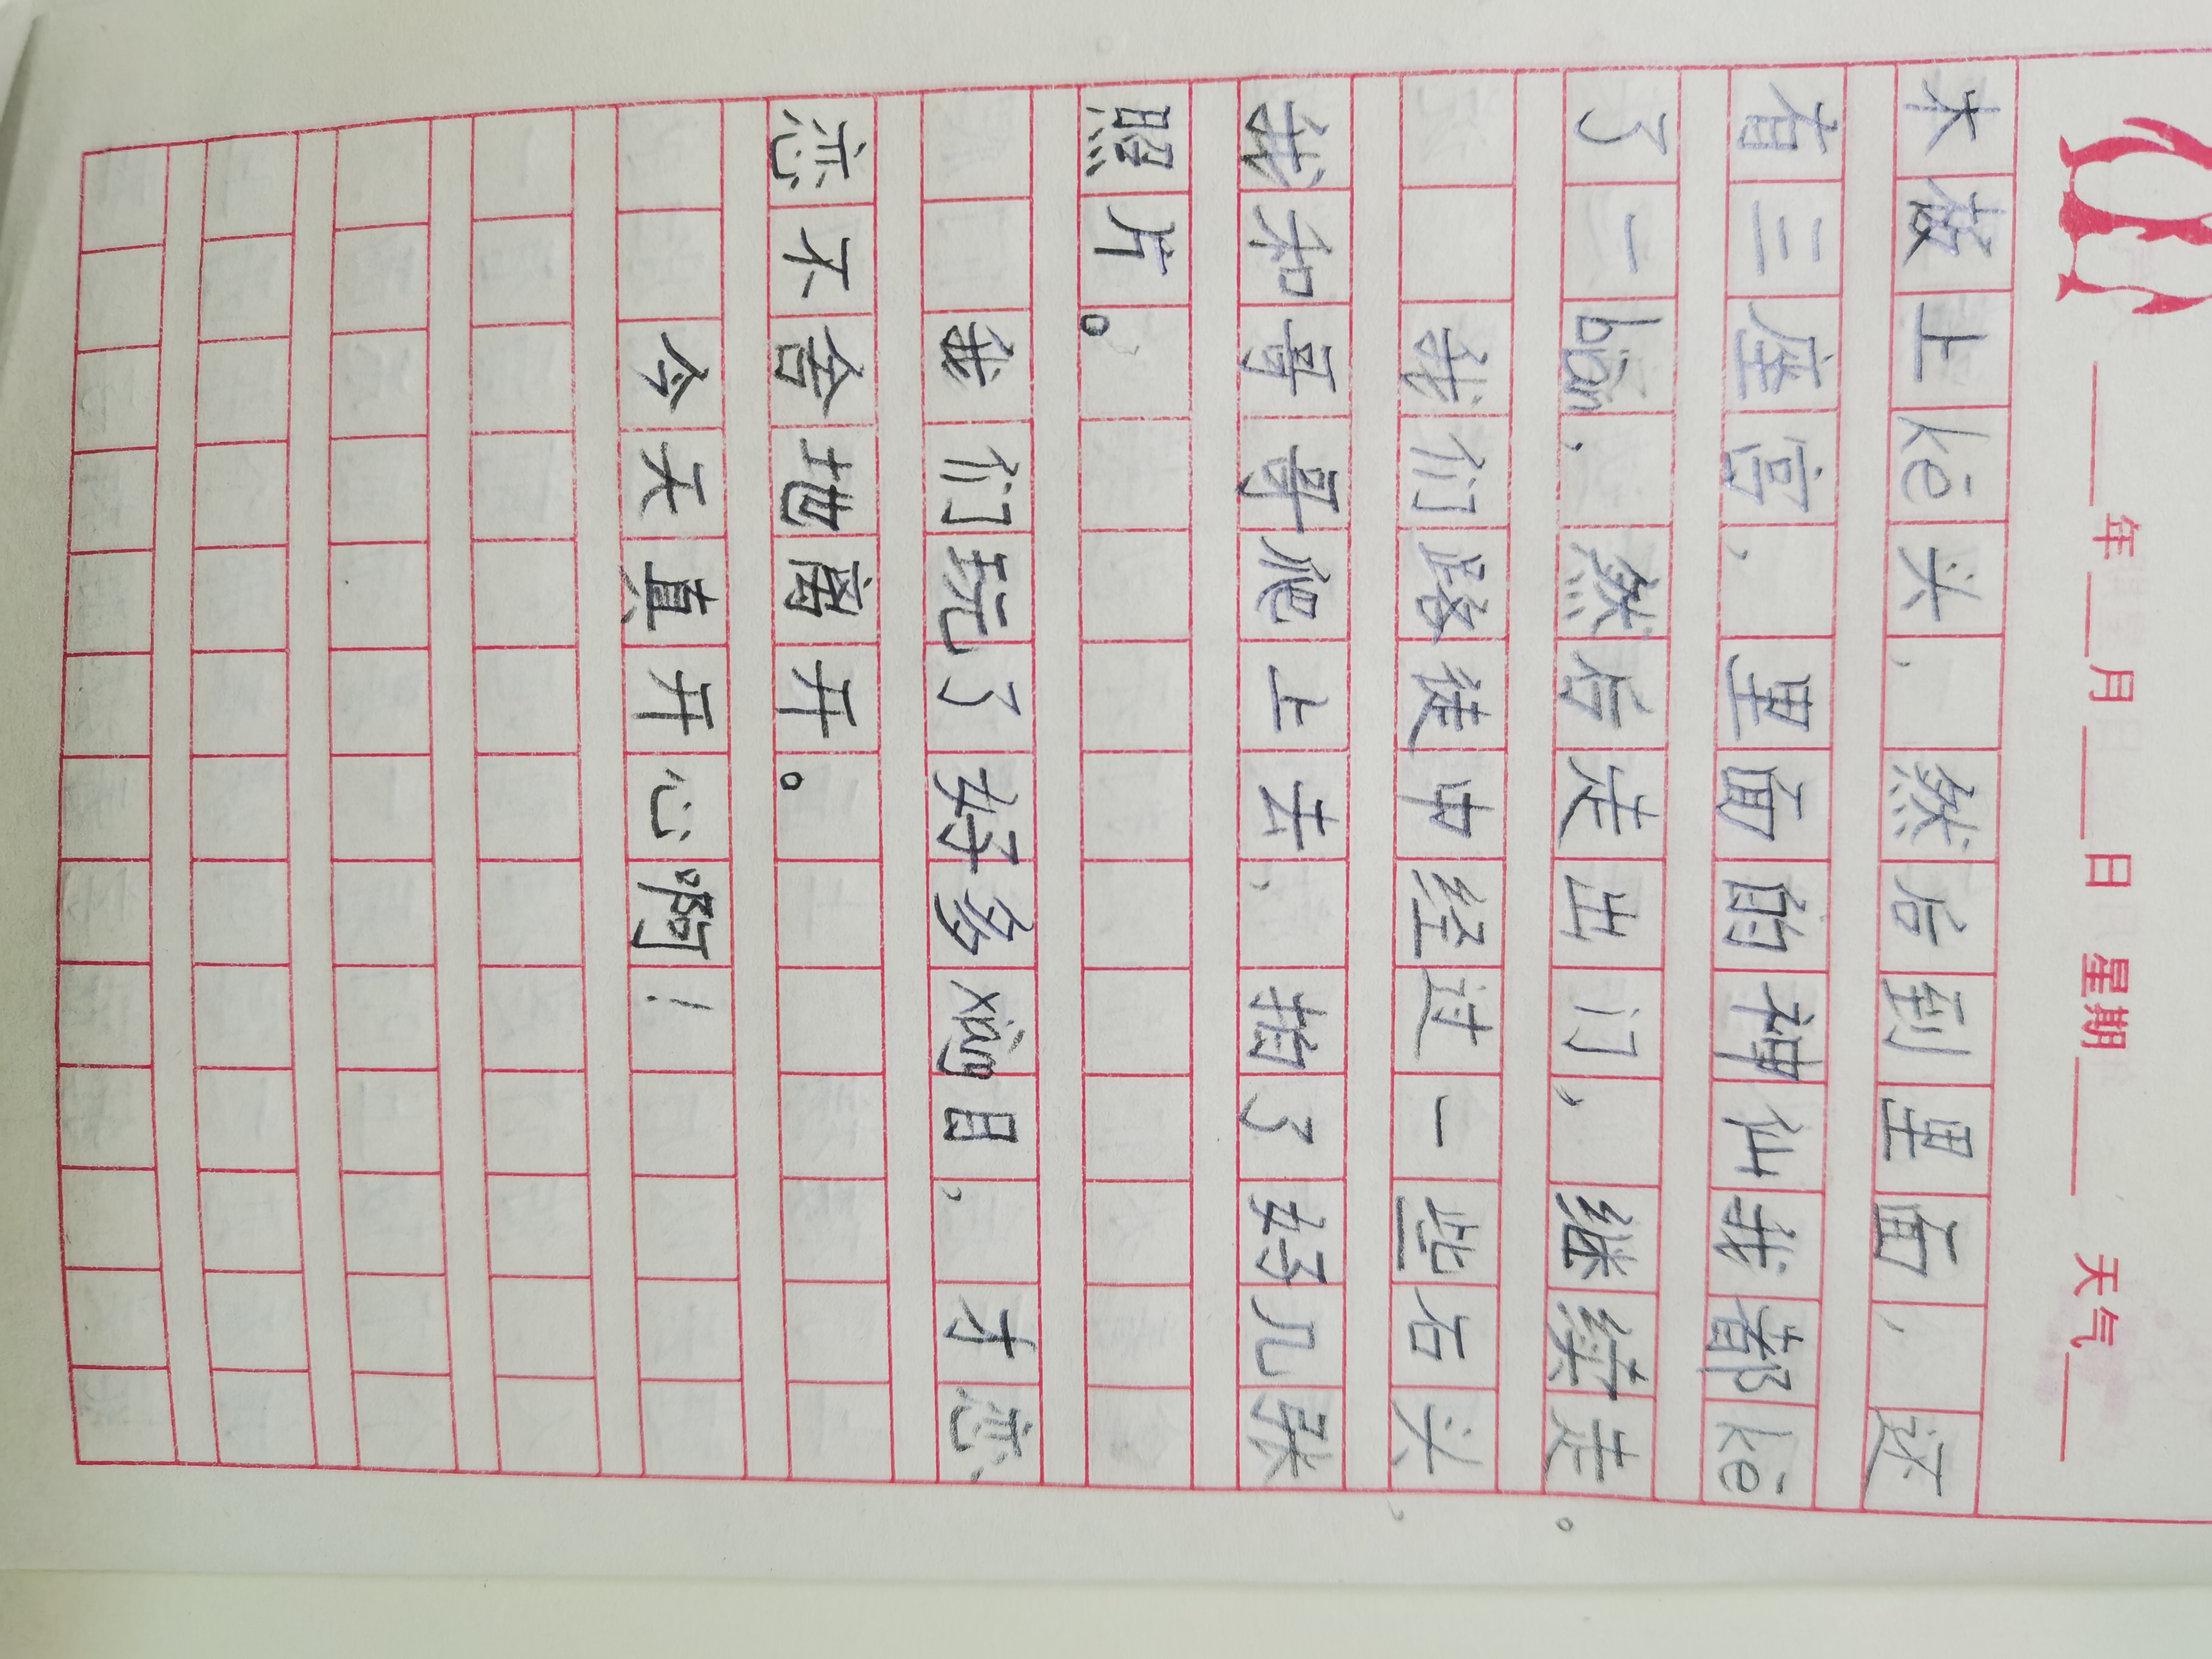 年 月 日 星期 天气
木放上kē头，然后到里面，这
有三座宫，里面的神仙我都kē
了一biàn，然后走出门，继续走。
我们路徒中经过一些石头，
我和哥哥爬上去，拍了好几张
照片。
我们玩了好多xiàng目，才恋
恋不舍地离开。
今天真开心啊！